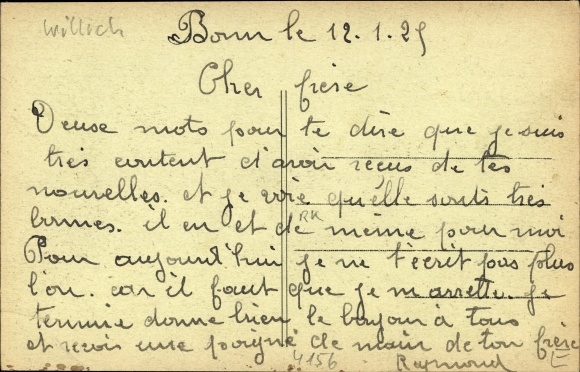 Willich
Bonn le 12.1.25
Cher frère
Deuse mots pour te dire que je suis
très content d'avoir reçus de tes
nouvelles. et je voie qu'elle sonts très
bonnes. il en et de même pour moi
RK
Pour aujourd'hui je ne t'écrit pas plus
l'on. car il faut que je m'arrette. je
termine donne bien le bonjour à tous
et recois une poigné de main de ton frère
4156 Raymond